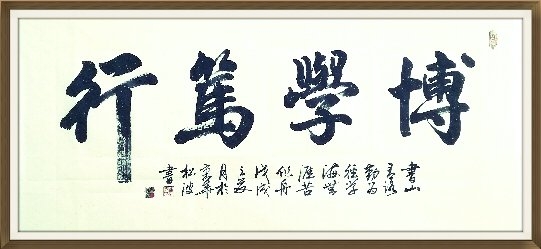 博學篤行
書山
有路
勤為
徑學
海無
涯苦
作舟
戊戌
之夏
月於
京華
松波
書